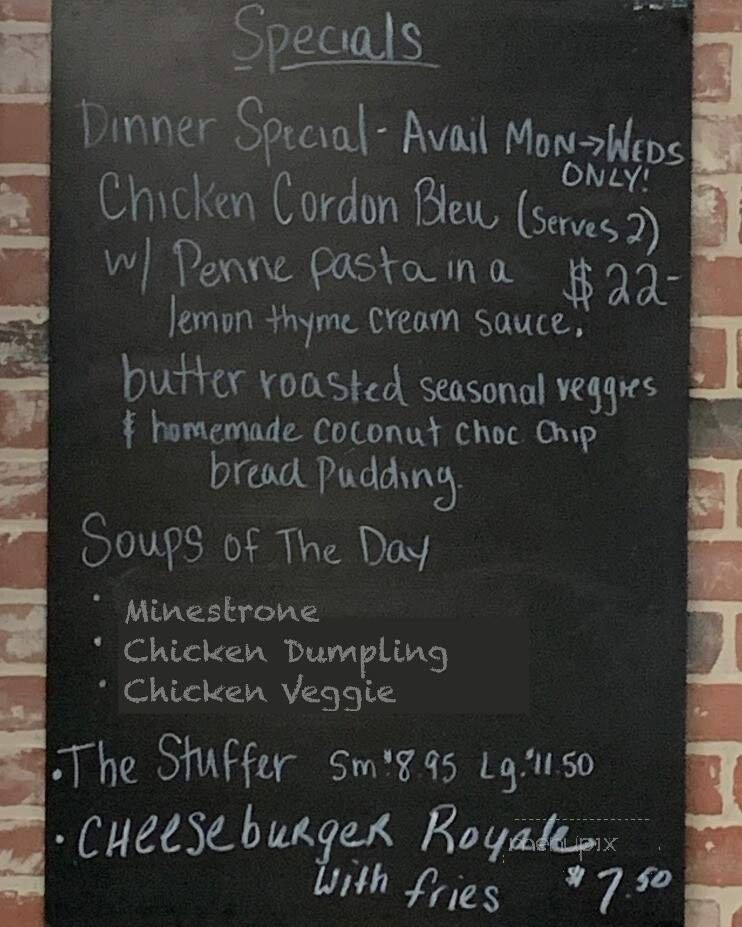 Specials
Dinner Special - Avail MON→WEDS
ONLY!
Chicken Cordon Bleu (Serves 2)
w/ Penne pasta in a $22-
lemon thyme cream sauce,
butter roasted seasonal veggies
& homemade coconut choc chip
bread pudding.
Soups of The Day
• Minestrone
• Chicken Dumpling
• Chicken Veggie
• The Stuffer Sm $8.95 Lg. $11.50
• CHeeseburgeR Royale
menupix
With fries $7.50